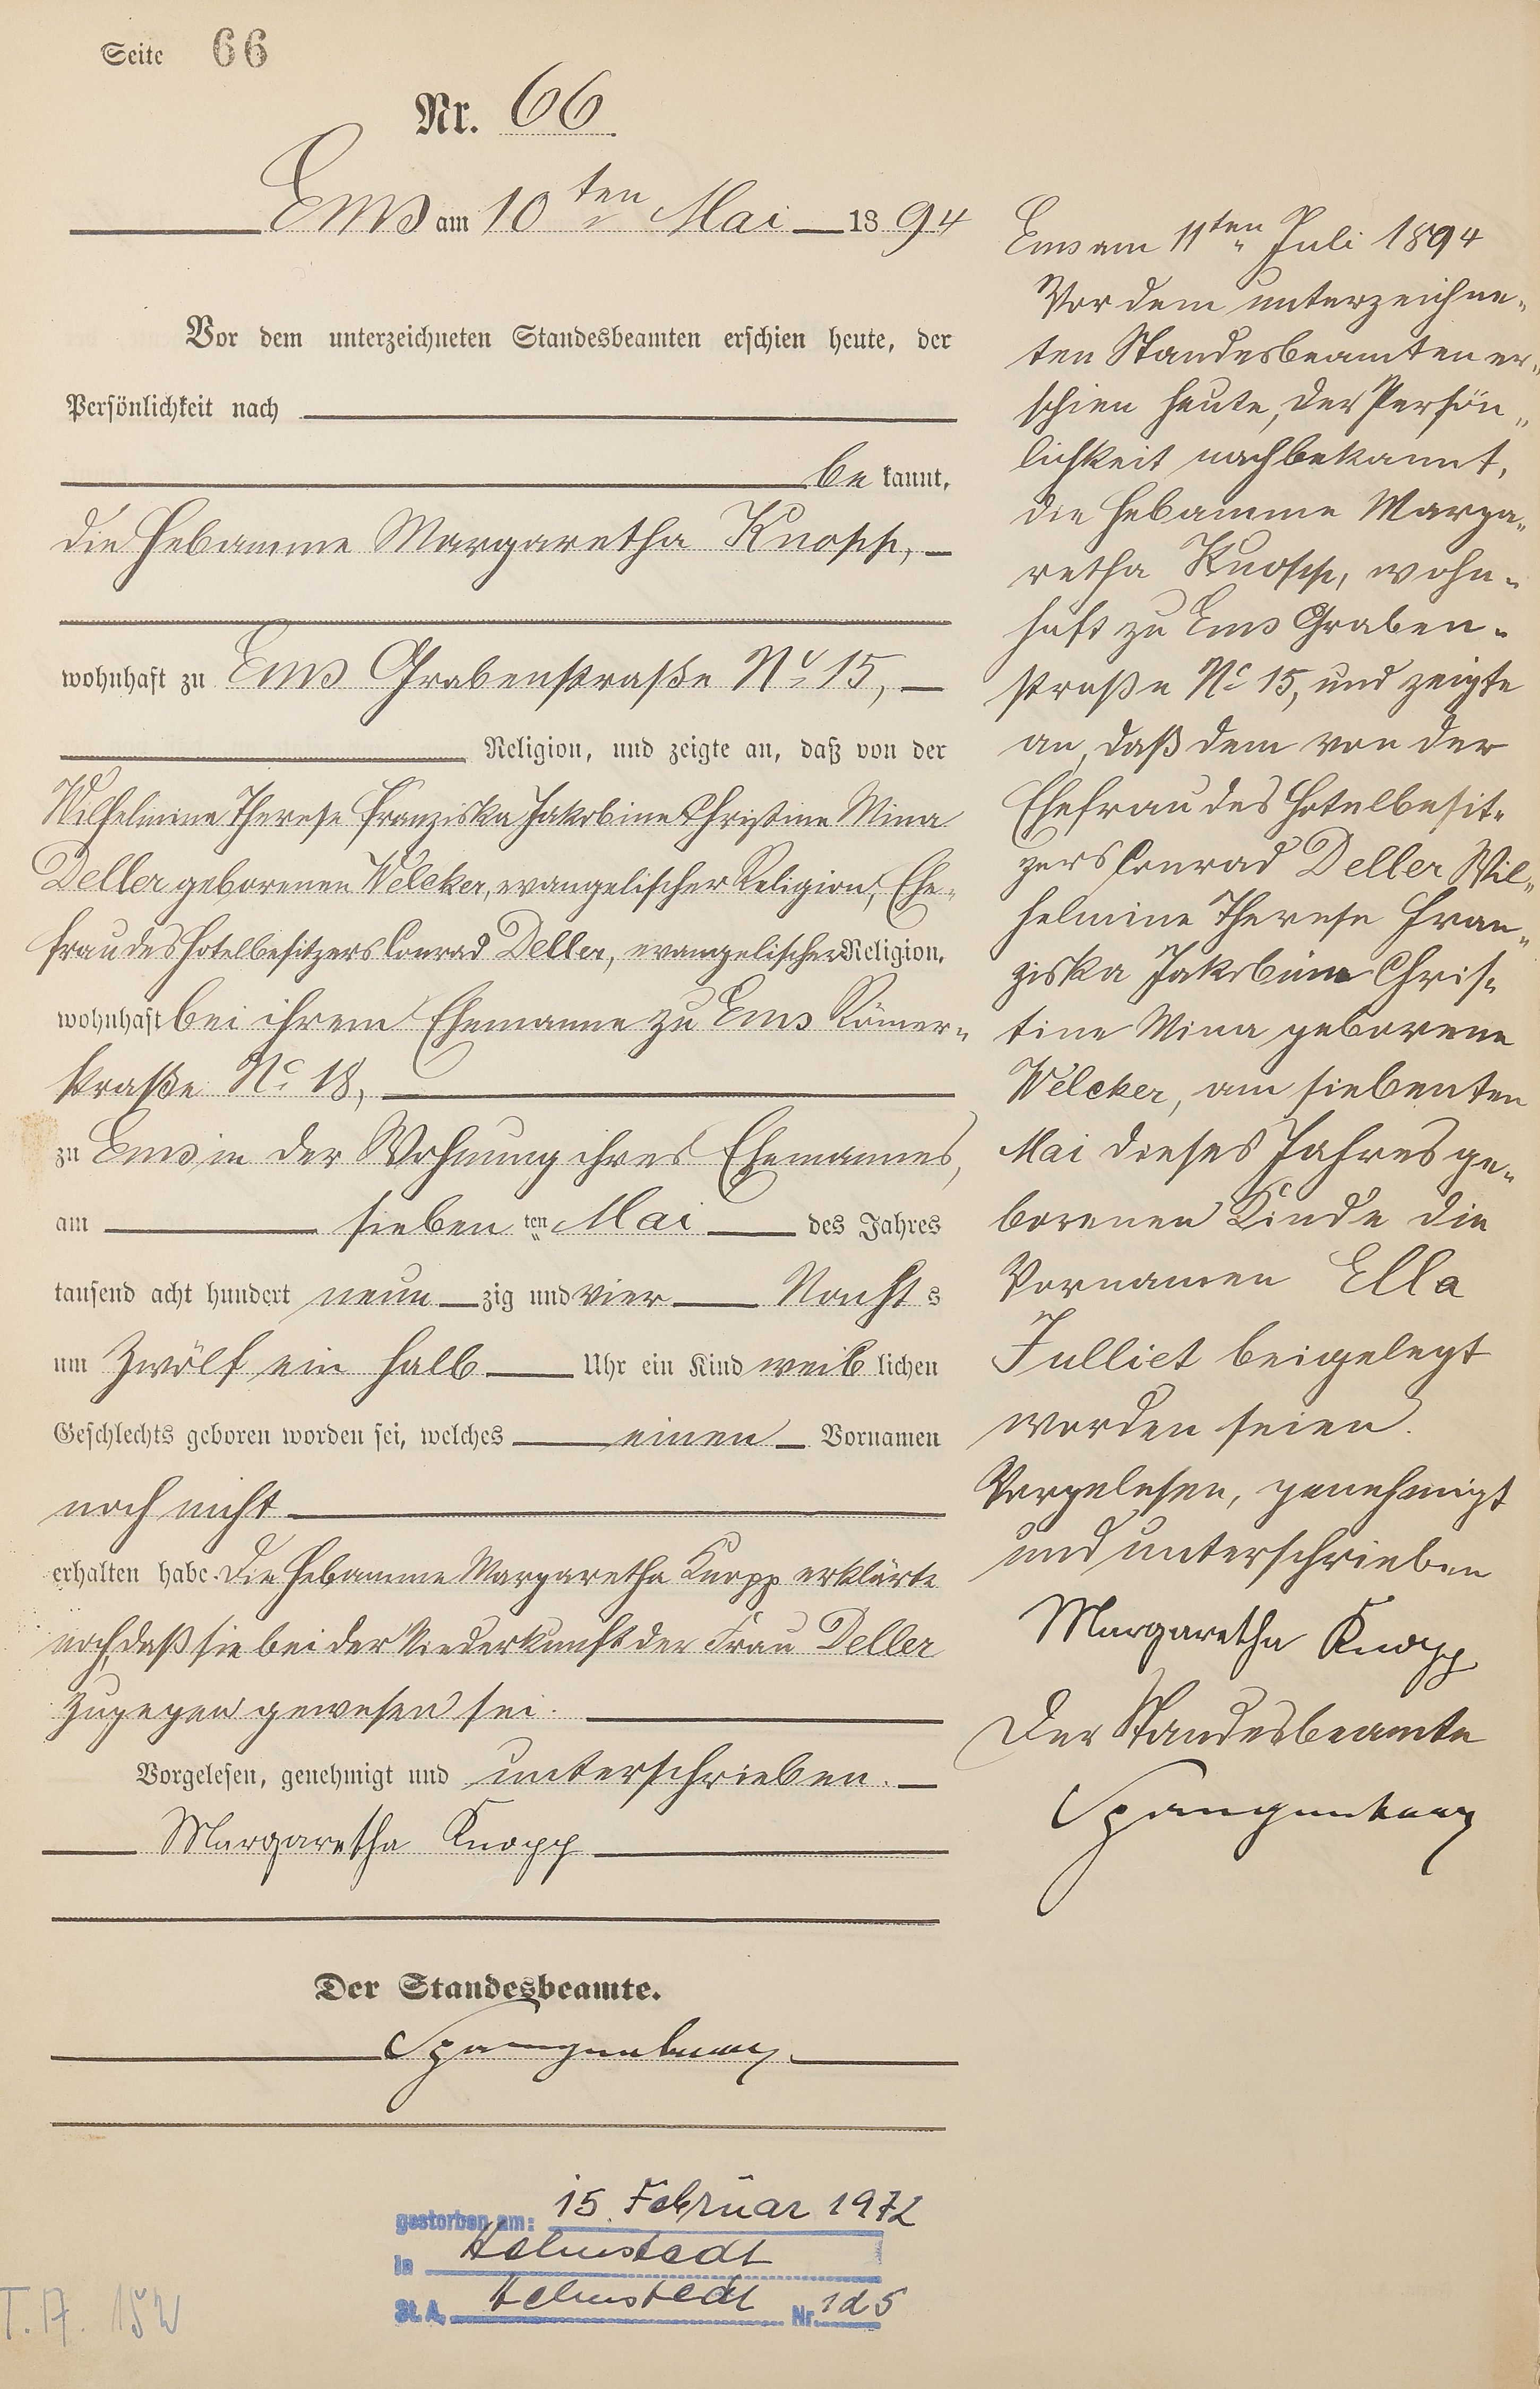 Seite 66
Nr. 66.
Ems am 10ten Mai 1894
Vor dem unterzeichneten Standesbeamten erschien heute, der
Persönlichkeit nach
be kannt,
die Hebamme Margaretha Knopp,
wohnhaft zu Ems Grabenstraße No 15,
Religion, und zeigte an, daß von der
Wilhelmine Therese Franziska Jakobine Christine Mina
Deller geborenen Welcker, evangelischer Religion, Ehe-
frau des Hotelbesitzers Conrad Deller, evangelischer Religion,
wohnhaft bei ihrem Ehemanne zu Ems Römer-
straße No 18,
zu Ems in der Wohnung ihres Ehemannes,
am sieben ten Mai des Jahres
tausend acht hundert neun zig und vier Nacht s
um zwölf ein halb Uhr ein Kind weib lichen
Geschlechts geboren worden sei, welches einen Vornamen
noch nicht
erhalten habe. Die Hebamme Margaretha Knopp erklärte
noch, daß sie bei der Niederkunft der Frau Deller
zugegen gewesen sei.
Vorgelesen, genehmigt und unterschrieben.
Margaretha Knopp
Der Standesbeamte.
Spangenberg
gestorben am: 15. Februar 1972
in Helmstedt
St. A. Helmstedt Nr. 125
Ems am 11ten Juli 1894
Vor dem unterzeichne-
ten Standesbeamten er-
schien heute, der Persön-
lichkeit nach bekannt,
die Hebamme Marga-
retha Knopp, wohn-
haft zu Ems Graben-
straße No 15, und zeigte
an, daß dem von der
Ehefrau des Hotelbesit-
zers Conrad Deller Wil-
helmine Therese Fran-
ziska Jakobine Chris-
tine Mina geborene
Welcker, am siebenten
Mai dieses Jahres ge-
borenen Kinde die
Vornamen Ella
Julliet beigelegt
worden seien.
Vorgelesen, genehmigt
und unterschrieben
Margaretha Knopp
Der Standesbeamte
Spangenberg